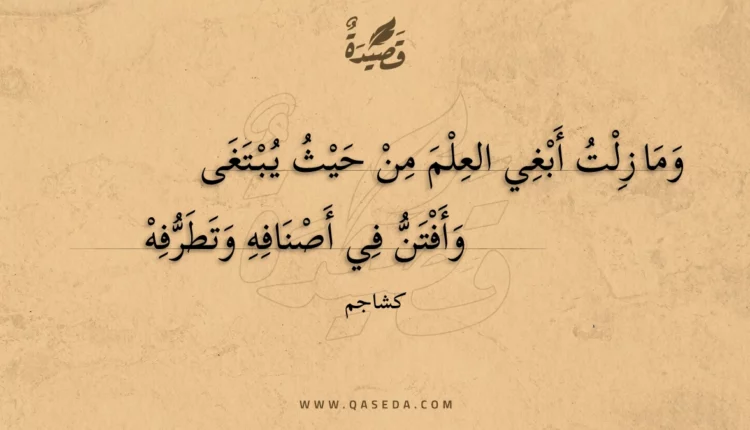 قَصِيْدَةٌ
وَمَا زِلْتُ أَبْغِي العِلْمَ مِنْ حَيْثُ يُبْتَغَى
وَأَفْتَنُّ فِي أَصْنَافِهِ وَتَطَرُّفِهْ
كشاجم
WWW.QASEDA.COM